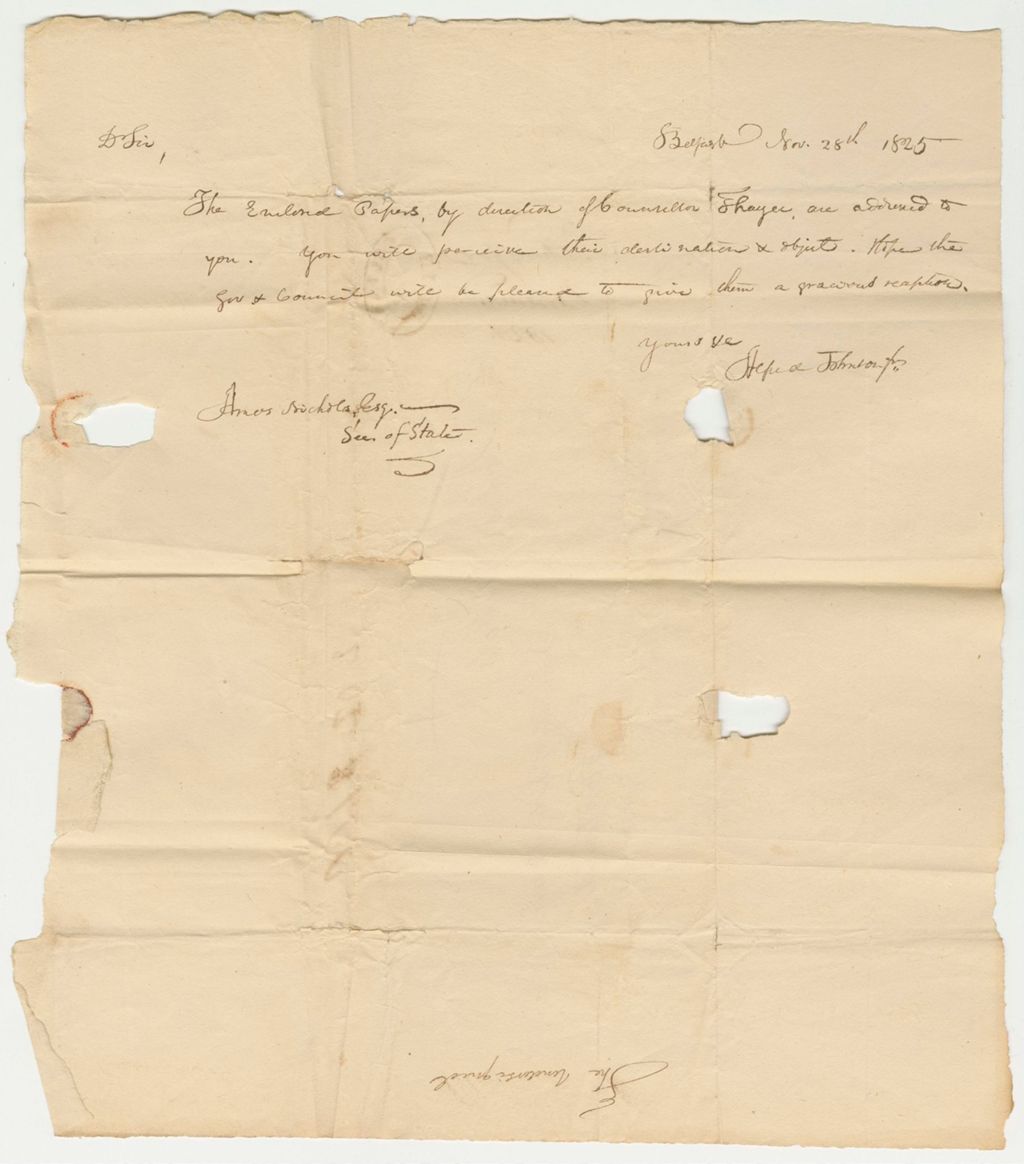 Belfast Nov. 28th 1825
Dr Sir,
The Enclosed Papers, by direction of Counsellor Thayer, are addressed to
you. You will perceive their destination & object. Hope the
Gov & Council will be pleased to give them a gracious reception.
Yours &c
Johnson Jr
Amos Nichols, Esq.
Sec. of State.
The undersigned